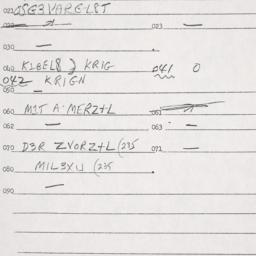 021 OSG3VARGL8T
022 — 023 —
030 —
040 KIBEL8 KRIG 041 0
042 KRIGN
050 —
060 MIT A·MERZ+L 061
062 — 063 —
070 D3R ZVORZ+L (235 071 —
080 MIL3XU (235
090 —